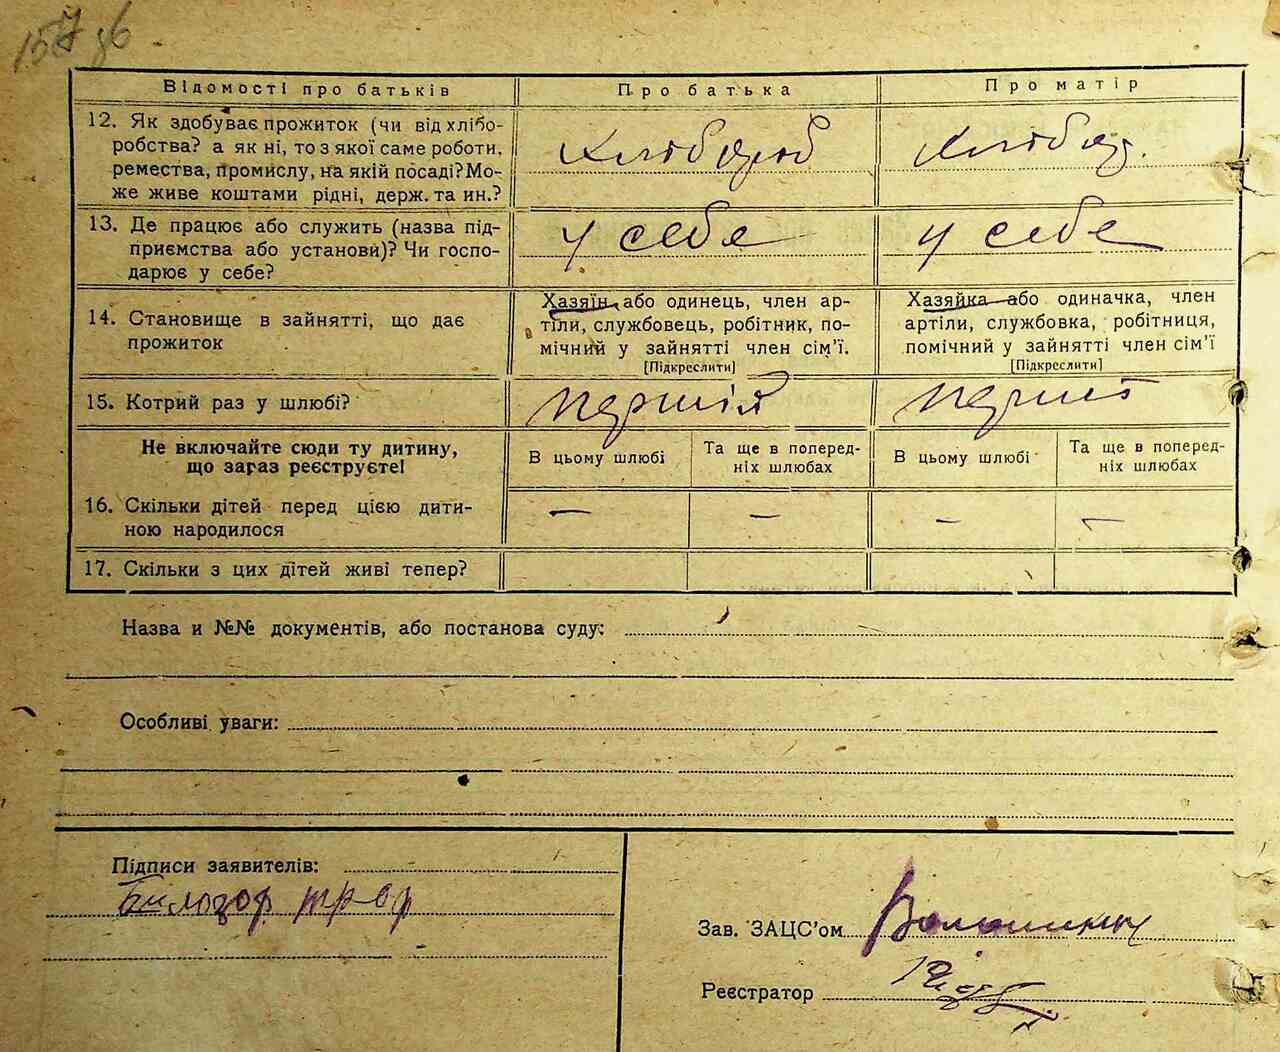 Відомості про батьків
Про батька
Про матір
12. Як здобуває прожиток (чи від хлібо-
робства? а як ні, то з якої саме роботи,
ремества, промислу, на якій посаді? Мо-
же живе коштами рідні, держ. та ин.?
Хлібороб
13. Де працює або служить (назва під-
приємства або установи)? Чи госпо-
дарює у себе?
у себе
у себе
14. Становище в зайнятті, що дає
прожиток
Хазяїн або одинець, член ар-
тіли, службовець, робітник, по-
мічний у зайнятті член сім’ї.
[Підкреслити]
Хазяйка або одиначка, член
артіли, службовка, робітниця,
помічний у зайнятті член сім’ї
[Підкреслити]
15. Котрий раз у шлюбі?
Не включайте сюди ту дитину,
що зараз реєструєте!
В цьому шлюбі
Та ще в поперед-
ніх шлюбах
В цьому шлюбі
Та ще в поперед-
ніх шлюбах
16. Скільки дітей перед цією дити-
ною народилося
— — — —
17. Скільки з цих дітей живі тепер?
Назва и №№ документів, або постанова суду:
Особливі уваги:
Підписи заявителів:
Билозор
Зав. ЗАЦС’ом
Реєстратор